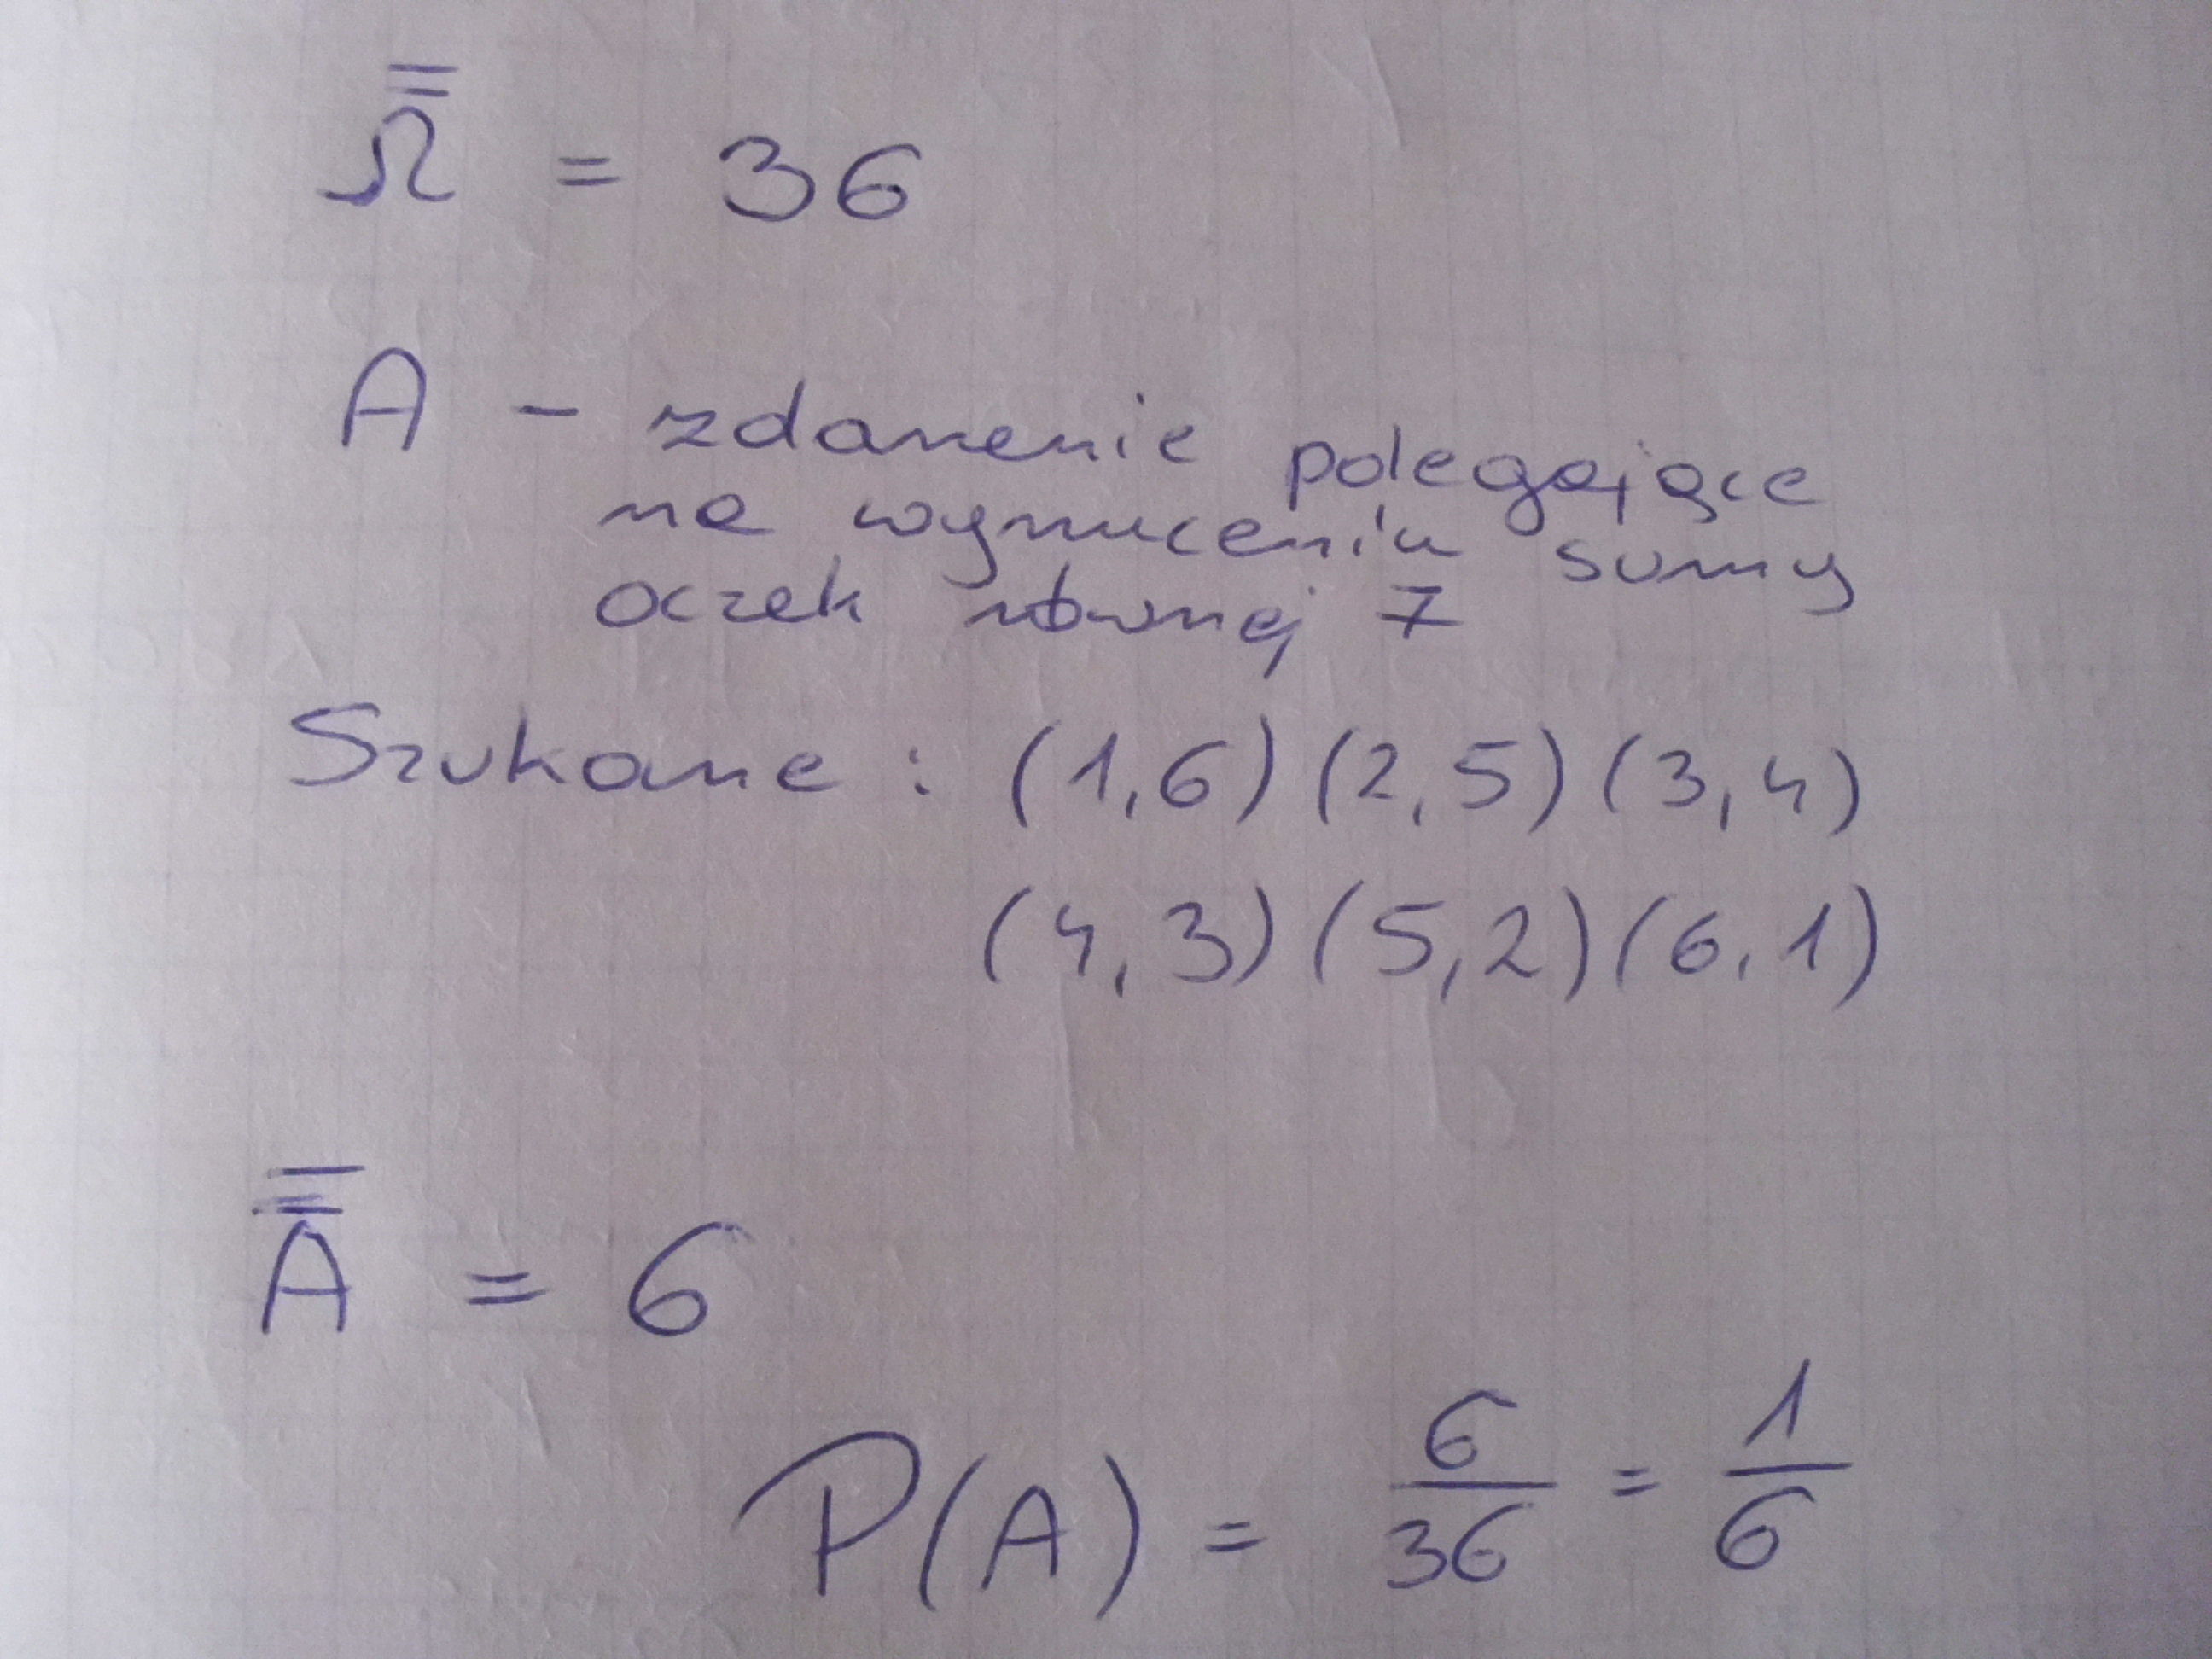 Ω̿ = 36
A - zdarzenie polegające
na wyrzuceniu sumy
oczek równej 7
Szukane : (1,6) (2,5) (3,4)
(4,3) (5,2) (6,1)
A̿ = 6
P(A) = 6/36 = 1/6